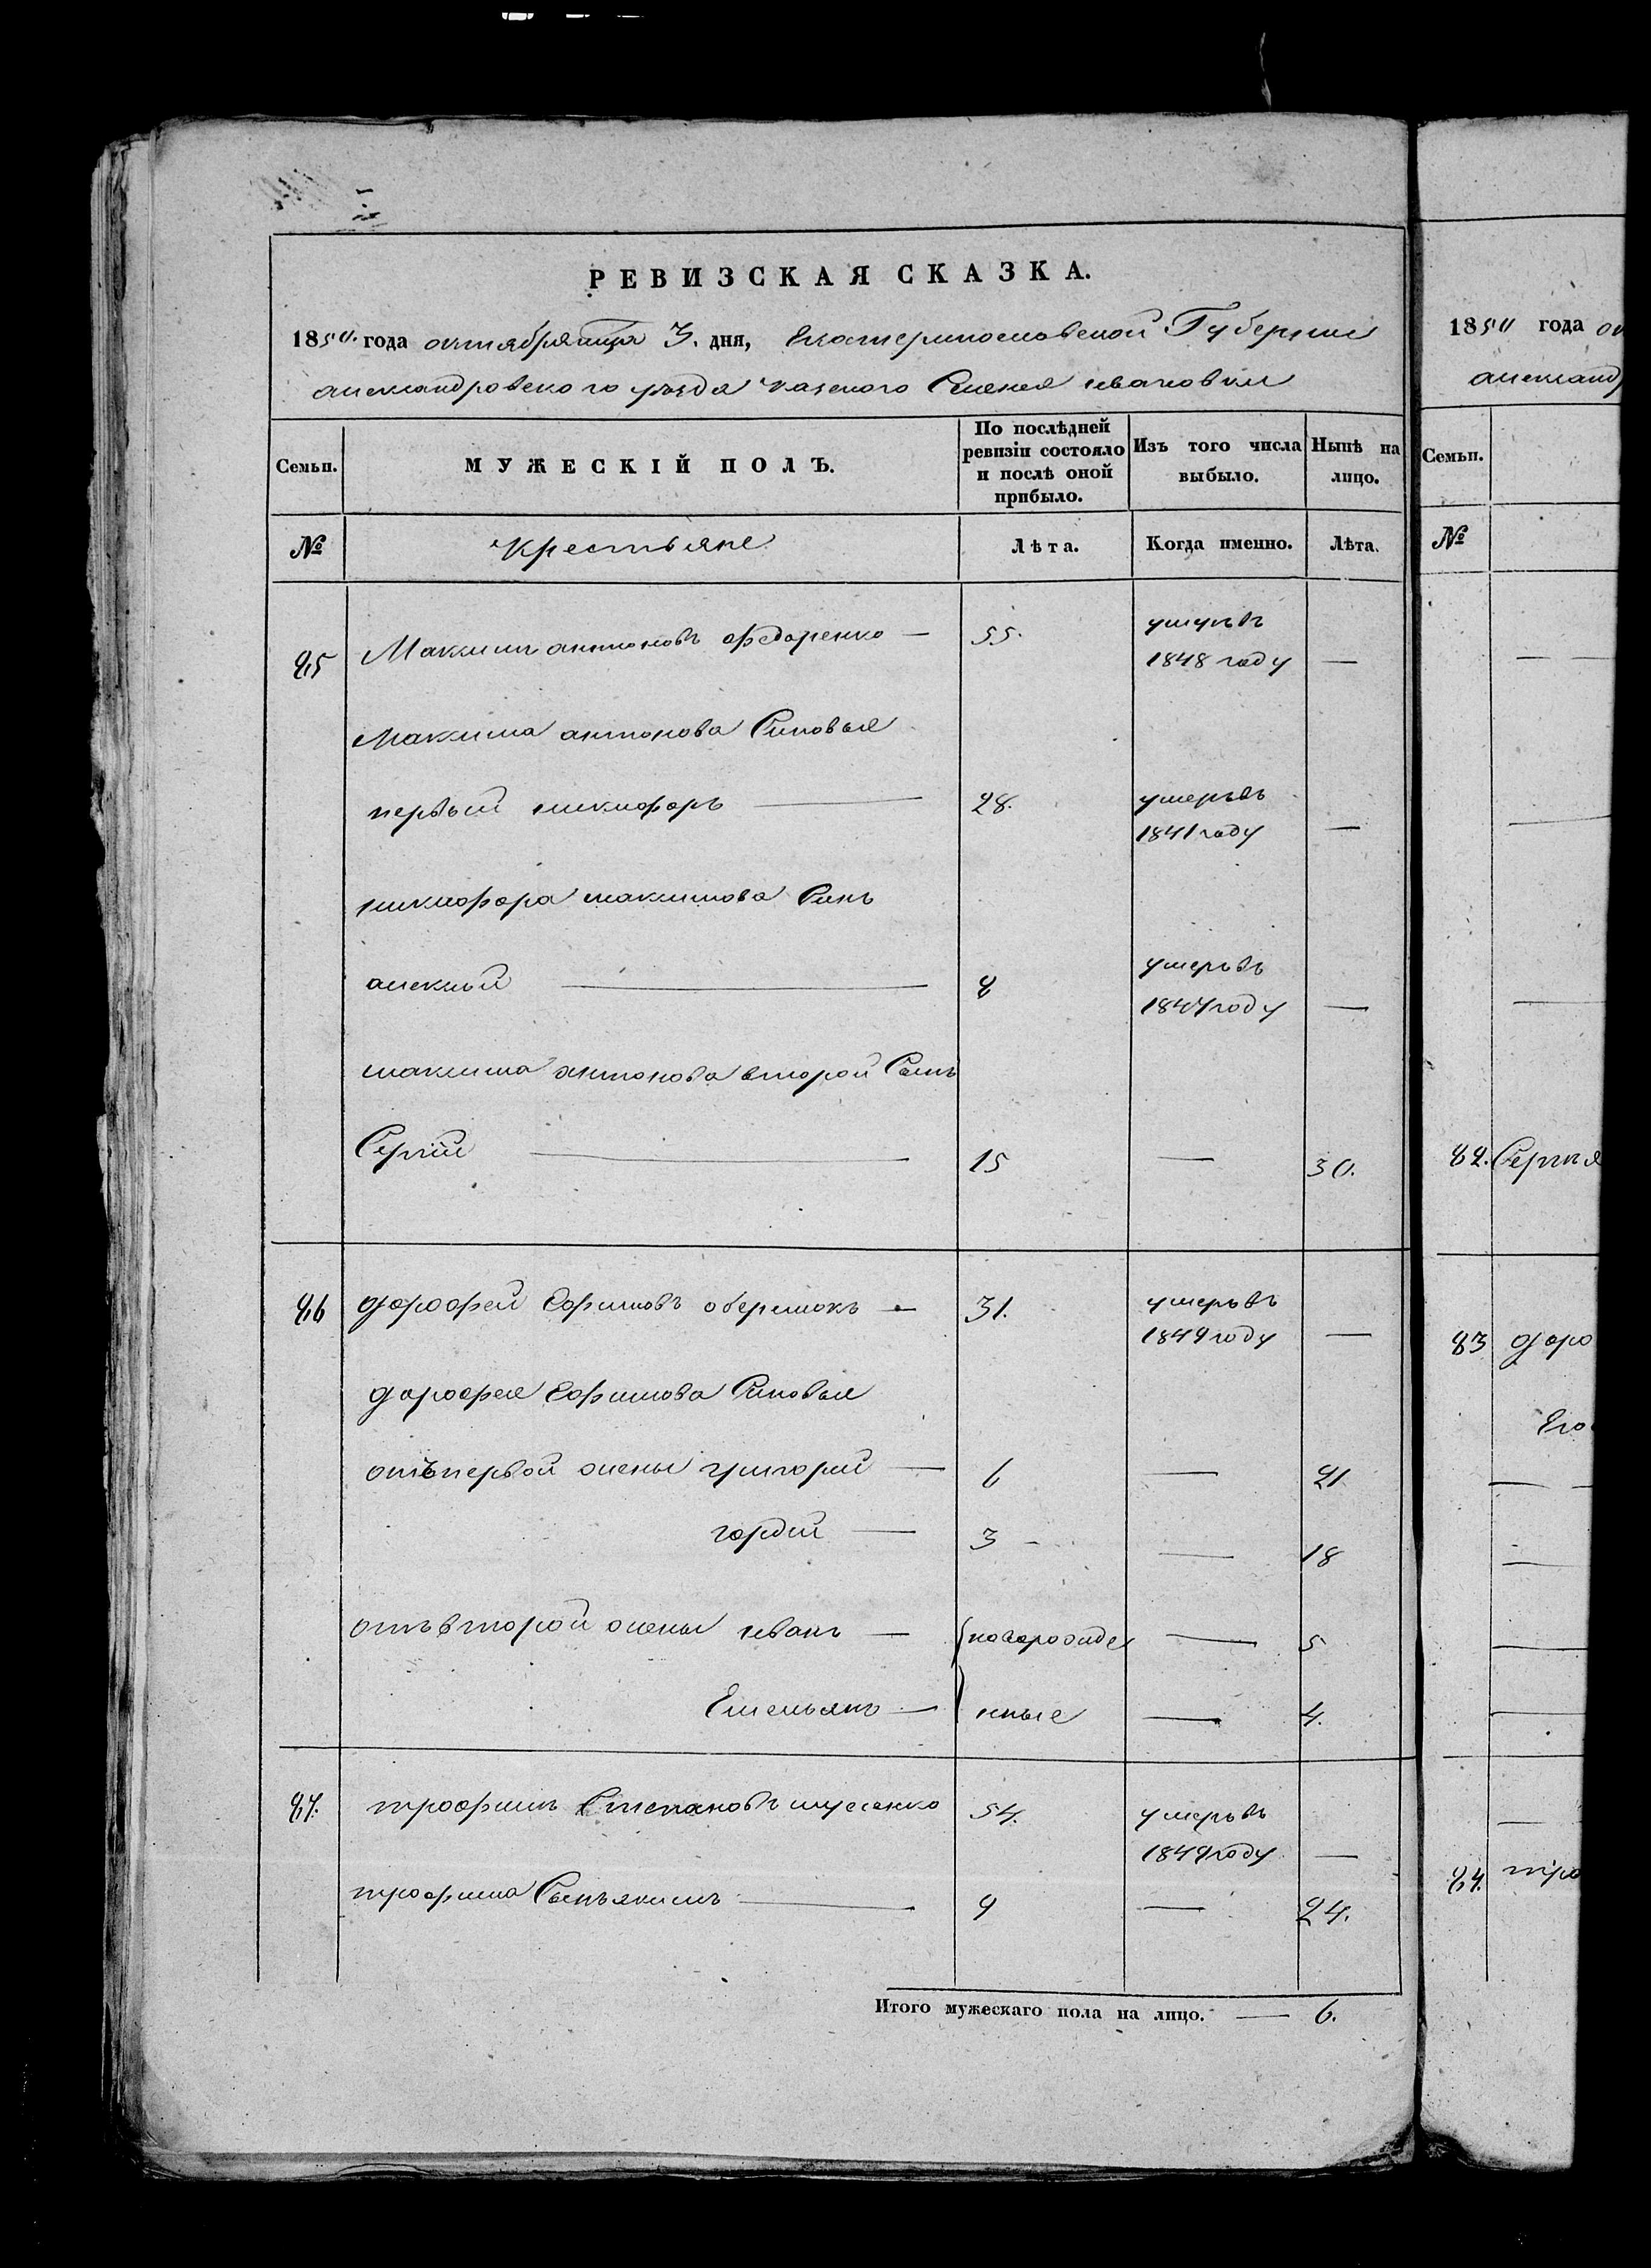 РЕВИЗСКАЯ СКАЗКА.
1850. года октября мца 3. дня, Екатеринославской Губернии
александровского уезда казеного Селения ивановки
Семьи.
МУЖЕСКІЙ ПОЛЪ.
По послѣдней ревизіи состояло и послѣ оной прибыло.
Изъ того числа выбыло.
Нынѣ на лицо.
№
Крестьяне
Лѣта.
Когда именно.
Лѣта.
Максим антоновъ федоренко — 55.
1848 году —
Максима антонова Синовья
первый никифоръ — 28. умеръ въ
1841 году —
никифора максимова Синъ
алексий — 8 умеръ въ
году —
максима антонова второй Сынъ
Сергий — 15 — 30.
86 дорофей Ефимовъ оберемокъ — 31. умеръ въ
1849 году —
дорофея Ефимова Синовья
отъ первой жены григорий — 6 — 21
гордий — 3 — 18
отъ второй жены иванъ — новорожде — 5
Емельянъ — нные — 4.
87. трофимъ Степановъ 54. умеръ въ
1849 году —
трофима Сынъ якимъ — 9 — 24.
Итого мужескаго пола на лицо. — 6.
1850 года
александ
Семьи.
№
82. Сергия
83 доро
Его
84. тро